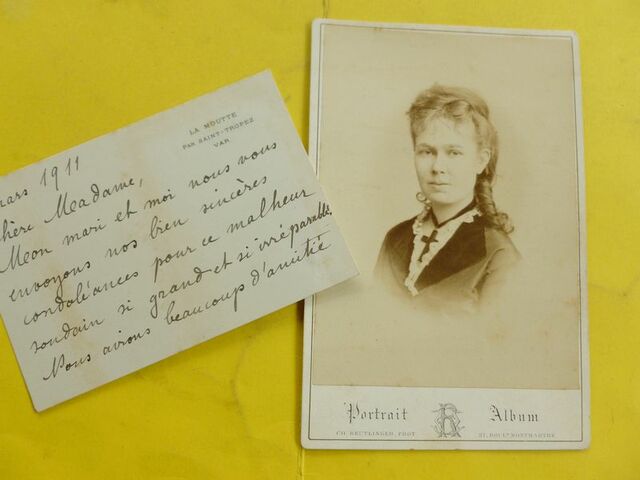 LA MOUTTE
PAR SAINT-TROPEZ
VAR
mars 1911
hère Madame,
Mon mari et moi nous vous
envoyons nos bien sincères
condoléances pour ce malheur
soudain si grand et si irréparable.
Nous avions beaucoup d'amitié
Portrait R Album
CH. REUTLINGER, PHOT. 21, BOULT MONTMARTRE